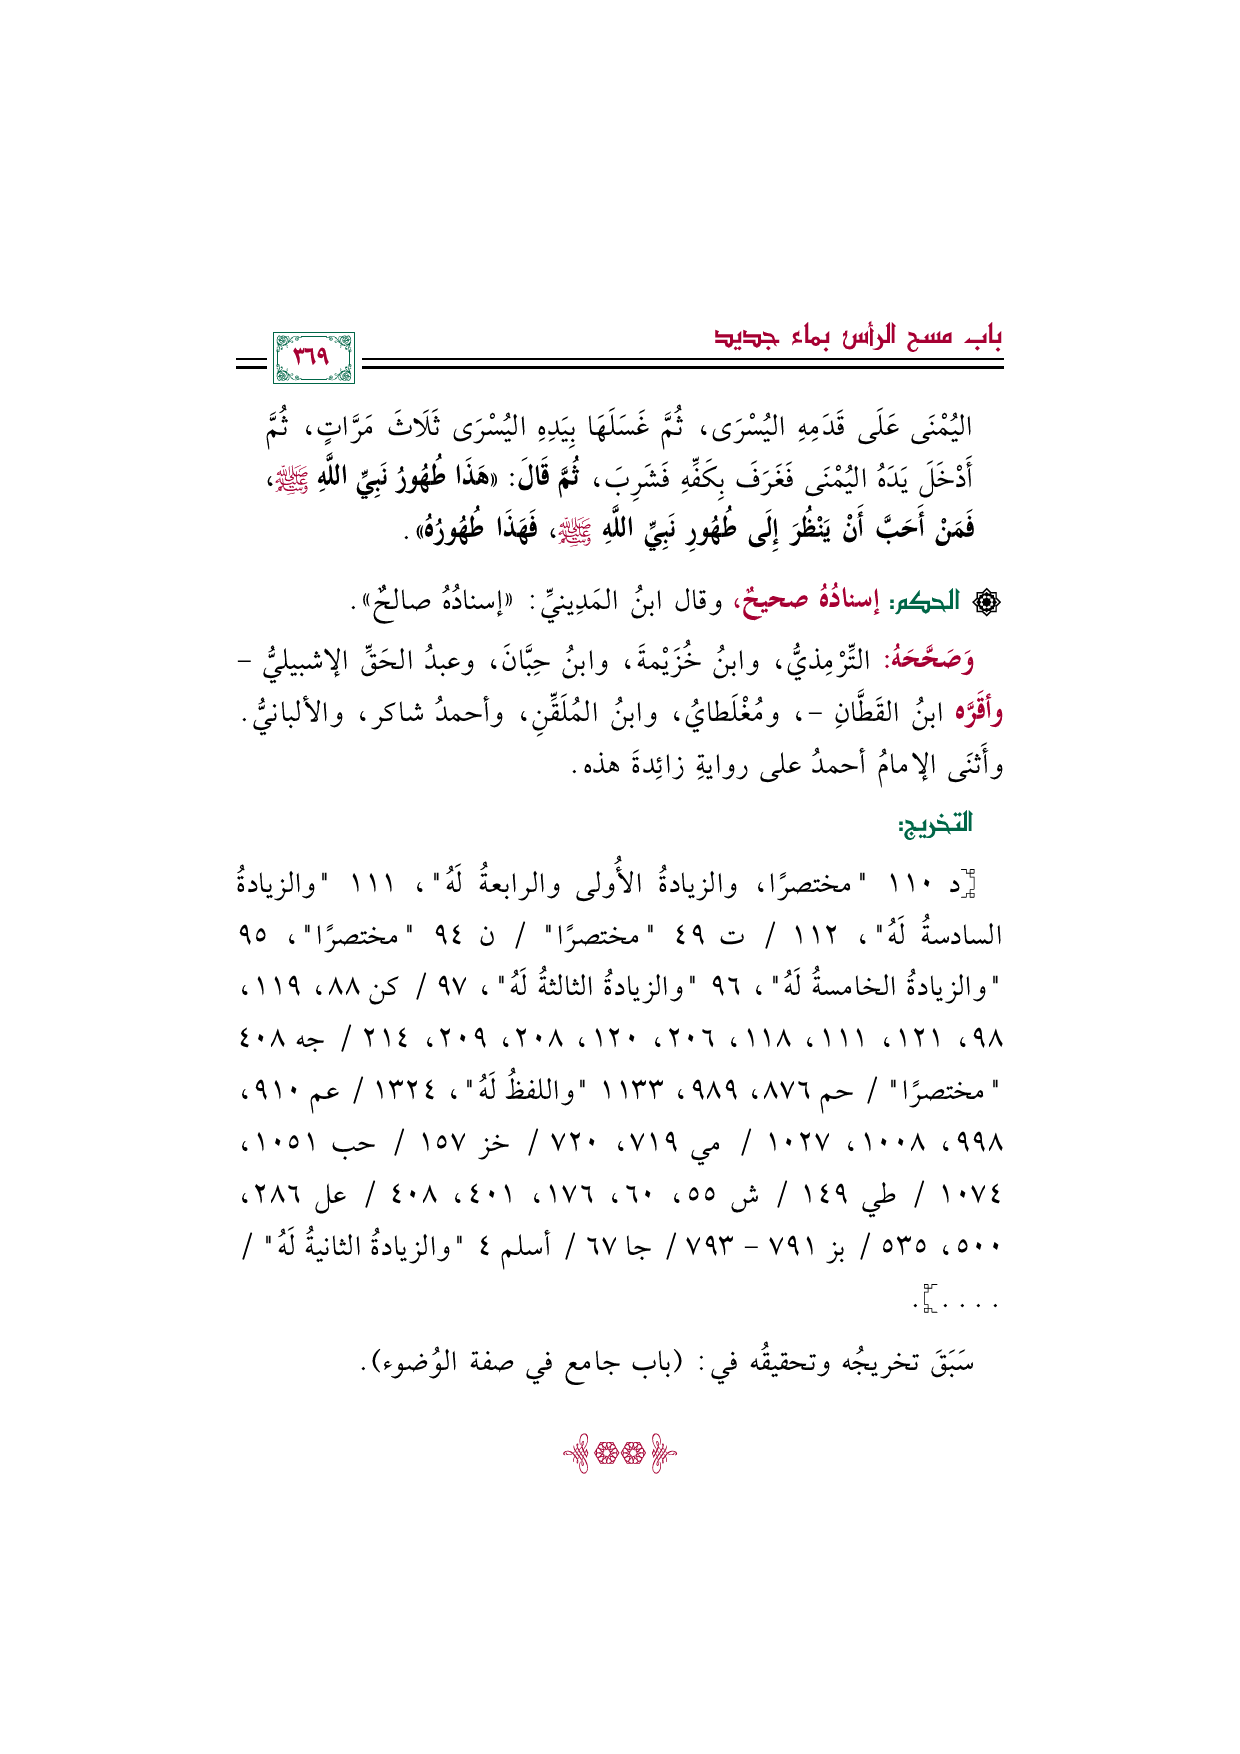 باب مسح الرأس بماء جديد
٣٦٩
اليُمْنَى عَلَى قَدَمِهِ اليُسْرَى، ثُمَّ غَسَلَهَا بِيَدِهِ اليُسْرَى ثَلَاثَ مَرَّاتٍ، ثُمَّ
أَدْخَلَ يَدَهُ اليُمْنَى فَغَرَفَ بِكَفِّهِ فَشَرِبَ، ثُمَّ قَالَ: «هَذَا طُهُورُ نَبِيِّ اللَّهِ ﷺ،
فَمَنْ أَحَبَّ أَنْ يَنْظُرَ إِلَى طُهُورِ نَبِيِّ اللَّهِ ﷺ، فَهَذَا طُهُورُهُ».
الحكم: إسنادُهُ صحيحٌ، وقال ابنُ المَدِينيِّ: «إسنادُهُ صالحٌ».
وَصَحَّحَهُ: التِّرْمِذيُّ، وابنُ خُزَيْمةَ، وابنُ حِبَّانَ، وعبدُ الحَقِّ الإشبيليُّ –
وأقَرَّه ابنُ القَطَّانِ –، ومُغْلَطايُ، وابنُ المُلَقِّنِ، وأحمدُ شاكر، والألبانيُّ.
وأَثنَى الإمامُ أحمدُ على روايةِ زائِدةَ هذه.
التخريج:
[د ١١٠ "مختصرًا، والزيادةُ الأُولى والرابعةُ لَهُ"، ١١١ "والزيادةُ
السادسةُ لَهُ"، ١١٢ / ت ٤٩ "مختصرًا" / ن ٩٤ "مختصرًا"، ٩٥
"والزيادةُ الخامسةُ لَهُ"، ٩٦ "والزيادةُ الثالثةُ لَهُ"، ٩٧ / كن ٨٨، ١١٩،
٩٨، ١٢١، ١١١، ١١٨، ٢٠٦، ١٢٠، ٢٠٨، ٢٠٩، ٢١٤ / جه ٤٠٨
"مختصرًا" / حم ٨٧٦، ٩٨٩، ١١٣٣ "واللفظُ لَهُ"، ١٣٢٤ / عم ٩١٠،
٩٩٨، ١٠٠٨، ١٠٢٧ / مي ٧١٩، ٧٢٠ / خز ١٥٧ / حب ١٠٥١،
١٠٧٤ / طي ١٤٩ / ش ٥٥، ٦٠، ١٧٦، ٤٠١، ٤٠٨ / عل ٢٨٦،
٥٠٠، ٥٣٥ / بز ٧٩١ – ٧٩٣ / جا ٦٧ / أسلم ٤ "والزيادةُ الثانيةُ لَهُ" /
....].
سَبَقَ تخريجُه وتحقيقُه في: (باب جامع في صفة الوُضوء).